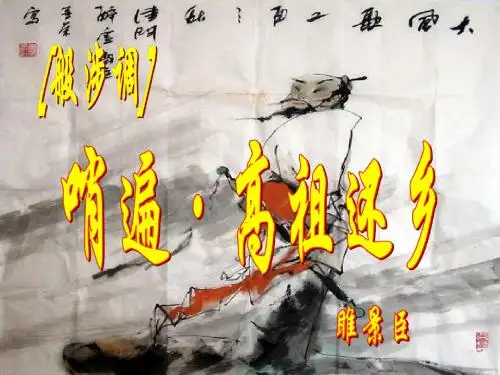 大風歌
【般涉调】
哨遍·高祖还乡
睢景臣